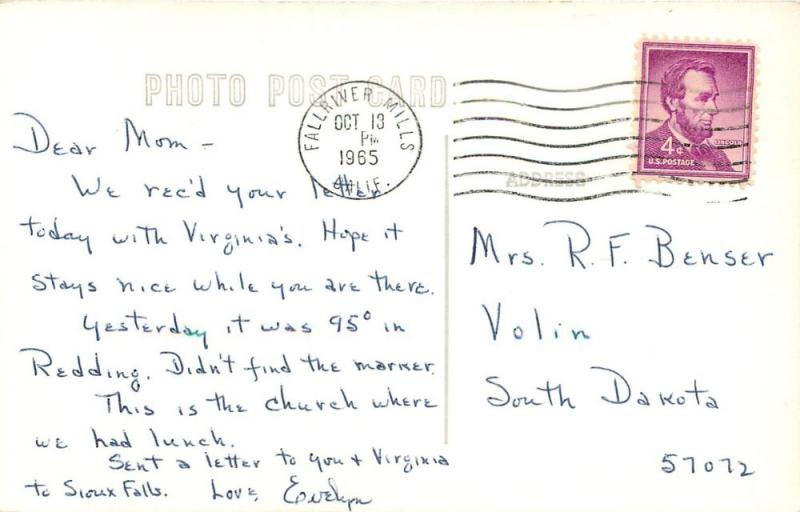 PHOTO POST CARD
FALLRIVER MILLS
OCT 13
PM
1965
CALIF.
LINCOLN
4¢
U.S. POSTAGE
ADDRESS
Dear Mom –
We rec'd your letter
today with Virginia's. Hope it
stays nice while you are there.
Yesterday it was 95° in
Redding. Didn't find the marker.
This is the church where
we had lunch.
Sent a letter to you + Virginia
to Sioux Falls. Love, Evelyn
Mrs. R. F. Benser
Volin
South Dakota
57072